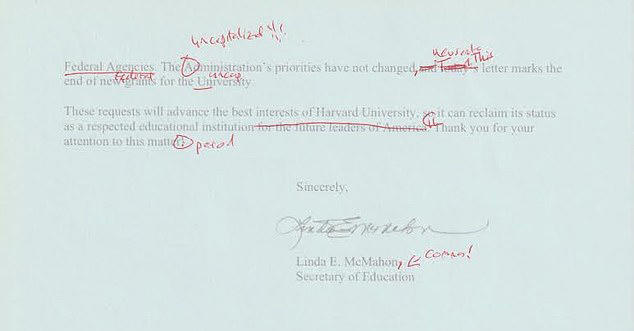 uncapitalized!!!
rewrite
Federal Agencies. The Administration's priorities have not changed, and today's letter marks the
This
federal
uncap
end of new grants for the University.
These requests will advance the best interests of Harvard University, so it can reclaim its status
as a respected educational institution for the future leaders of America. Thank you for your
attention to this matter.
period
Sincerely,
Linda E. McMahon
Linda E. McMahon, comma!
Secretary of Education